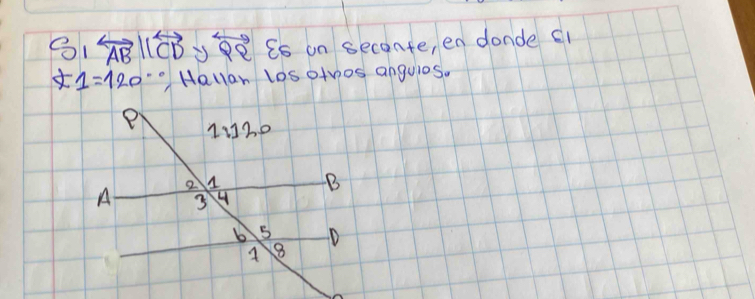 Si AB || CD y PQ Es un secante, en donde si
∡1=120°°, Hallar los otros angulos.
P
1:120
2 1
A B
3 4
6 5 D
7 8